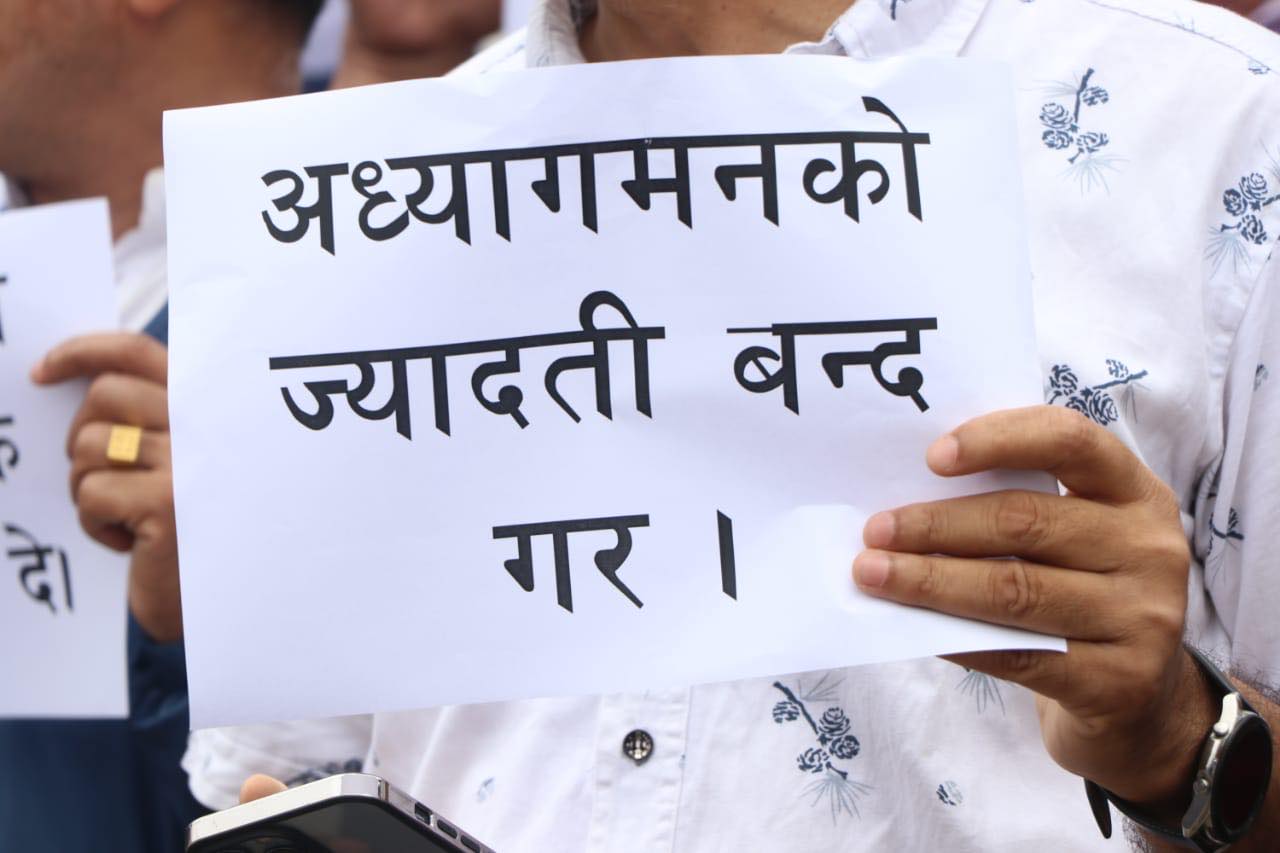 अध्यागमनको
ज्यादती बन्द
गर ।